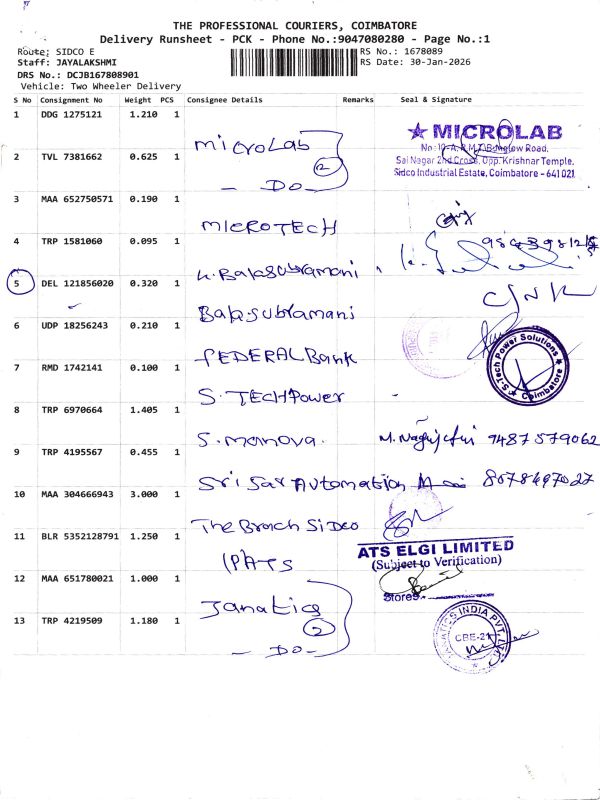 THE PROFESSIONAL COURIERS, COIMBATORE
Delivery Runsheet - PCK - Phone No.:9047080280 - Page No.:1
Route: SIDCO E
RS No.: 1678089
Staff: JAYALAKSHMI
RS Date: 30-Jan-2026
DRS No.: DCJB167808901
Vehicle: Two Wheeler Delivery
S No Consignment No Weight PCS Consignee Details Remarks Seal & Signature
1 DDG 1275121 1.210 1
MicroLab
★ MICROLAB
Sai Nagar 2nd Cross, Opp. Krishnar Temple,
Sidco Industrial Estate, Coimbatore - 641 021
2 TVL 7381662 0.625 1
2
- DO -
3 MAA 652750571 0.190 1
MICROTECH
4 TRP 1581060 0.095 1
K. Balasubramani
5 DEL 121856020 0.320 1
Balasubramani
6 UDP 18256243 0.210 1
FEDERAL Bank
7 RMD 1742141 0.100 1
S. TECHPower
S-Tech Power Solutions
Coimbatore
8 TRP 6970664 1.405 1
S. Manova. 7487579062
9 TRP 4195567 0.455 1
Sri Sai Automation 8078697027
10 MAA 304666943 3.000 1
The Branch Sidco
11 BLR 5352128791 1.250 1
IPATS
ATS ELGI LIMITED
(Subject to Verification)
Stores
12 MAA 651780021 1.000 1
Janatics
2
13 TRP 4219509 1.180 1
- DO -
JANATICS INDIA PVT. LTD.
CBE-21